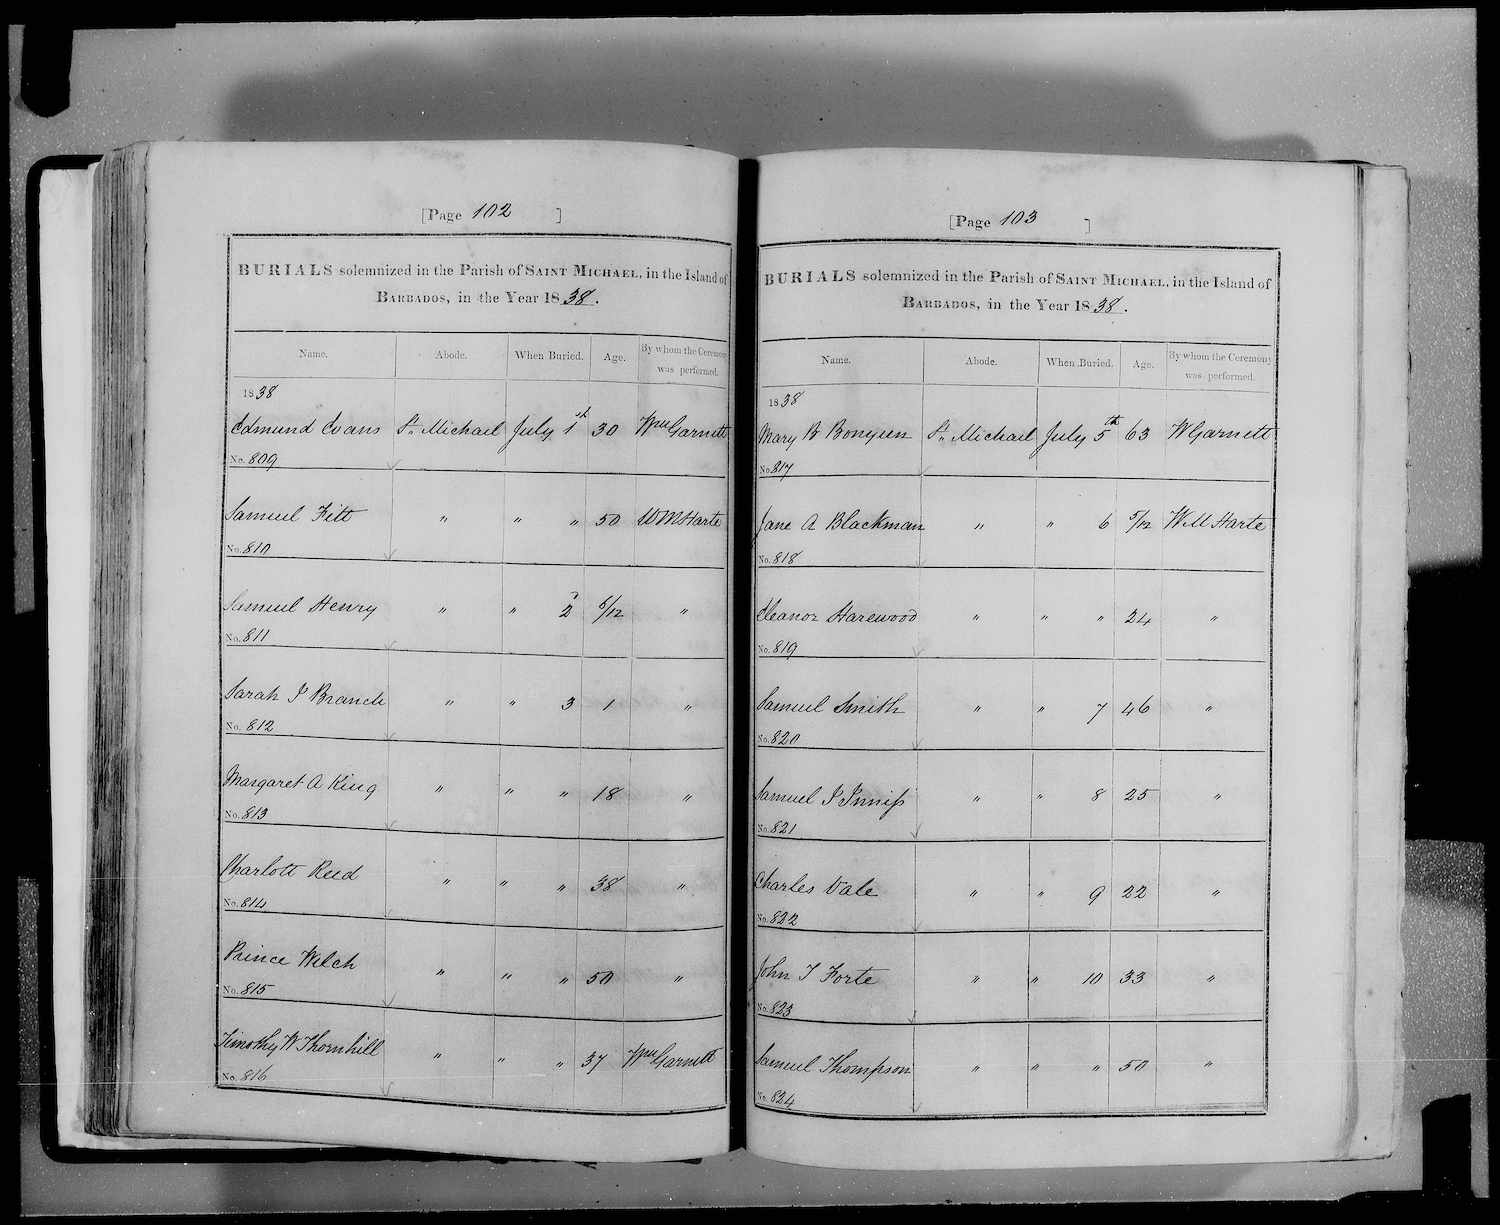 [Page 102 ]
BURIALS solemnized in the Parish of SAINT MICHAEL, in the Island of
BARBADOS, in the Year 1838.
Name. Abode. When Buried. Age. By whom the Ceremony was performed.
1838
Edmund Evans St. Michael July 1st 30 Wm Garnett
No. 809
Samuel Fitt " " " 50 W M Harte
No. 810
Samuel Henry " " 2 6/12 "
No. 811
Sarah J Branch " " 3 1 "
No. 812
Margaret A King " " " 18 "
No. 813
Charlott Reed " " " 38 "
No. 814
Prince Welch " " " 50 "
No. 815
Timothy W Thornhill " " " 37 Wm Garnett
No. 816
[Page 103 ]
BURIALS solemnized in the Parish of SAINT MICHAEL, in the Island of
BARBADOS, in the Year 1838.
Name. Abode. When Buried. Age. By whom the Ceremony was performed.
1838
Mary B Bonyun St. Michael July 5th 63 W Garnett
No. 817
Jane A Blackman " " 6 5/12 W M Harte
No. 818
Eleanor Harewood " " " 24 "
No. 819
Samuel Smith " " 7 46 "
No. 820
Samuel J Inniss " " 8 25 "
No. 821
Charles Vale " " 9 22 "
No. 822
John T Forte " " 10 33 "
No. 823
Samuel Thompson " " " 50 "
No. 824